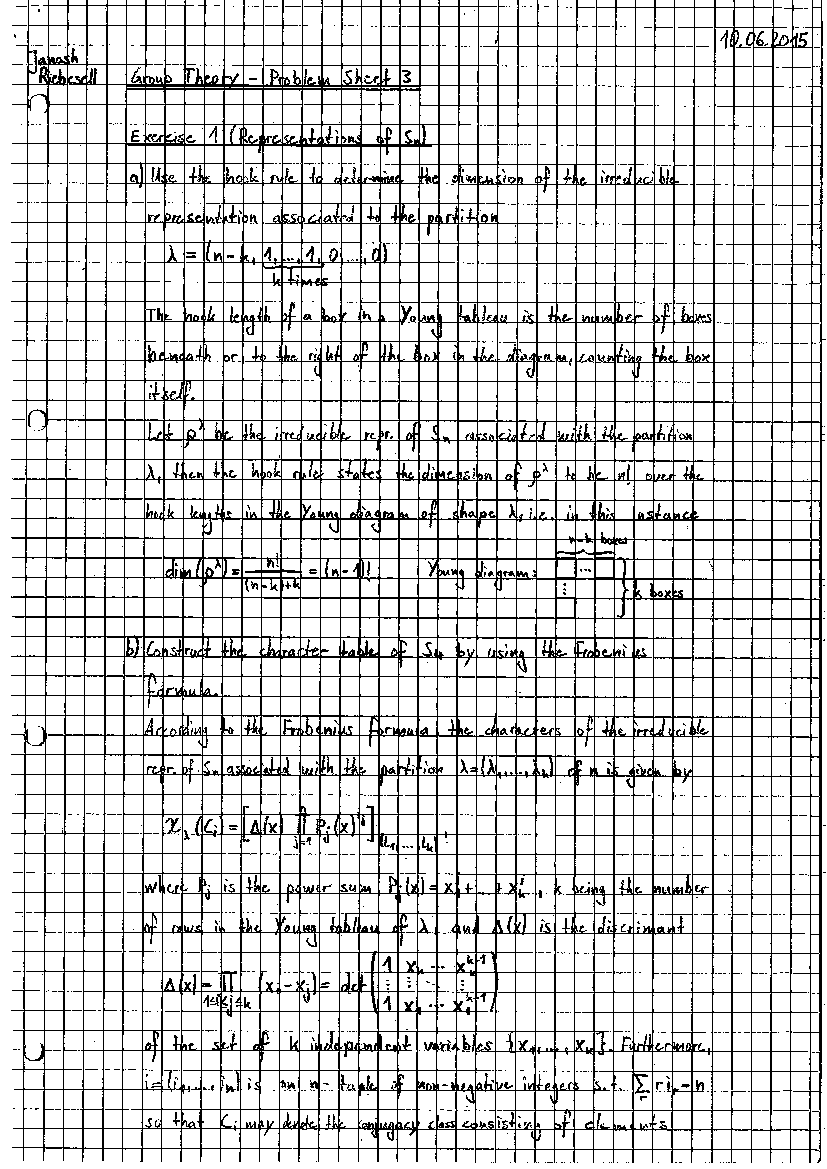 10.06.2015
Janosh
Riebesell
Group Theory – Problem Sheet 3
Exercise 1 (Representations of Sn)
a) Use the hook rule to determine the dimension of the irreducible
representation associated to the partition
λ = (n-k, 1,...,1, 0,...,0)
k times
The hook length of a box in a Young tableau is the number of boxes
beneath or to the right of the box in the diagram, counting the box
itself.
Let ρ^λ be the irreducible repr. of Sn associated with the partition
λ, then the hook rule states the dimension of ρ^λ to be n! over the
hook lengths in the Young diagram of shape λ, i.e. in this instance
n-k boxes
dim(ρ^λ) = n!/((n-k)+k) = (n-1)! Young diagram: ... k boxes
b) Construct the character table of S4 by using the Frobenius
formula.
According to the Frobenius formula, the characters of the irreducible
repr. of Sn associated with the partition λ=(λ1,...,λk) of n is given by
χ_λ(C_i) = [Δ(x) ∏_{j=1}^n P_j(x)^{i_j}]_{(l_1,...,l_k)},
where P_j is the power sum P_j(x) = x_1^j + ... + x_k^j, k being the number
of rows in the Young tableau of λ, and Δ(x) is the discrimant
Δ(x) = ∏_{1≤i<j≤k} (x_i - x_j) = det (1 x_k ... x_k^{k-1} ⋮ ⋮ ⋱ ⋮ 1 x_1 ... x_1^{k-1})
of the set of k independent variables {x_1,...,x_k}. Furthermore,
i=(i_1,...,i_n) is an n-tuple of non-negative integers s.t. Σ_r r i_r = n
so that C_i may denote the conjugacy class consisting of elements